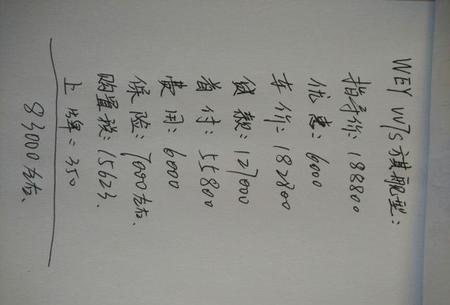 WEY VV7s旗舰型:
指导价: 188800
优惠: 6000
车价: 182800
贷款: 127000
首付: 55800
费用: 6000
保险: 7000左右.
购置税: 15623.
上牌: 350
83000左右.